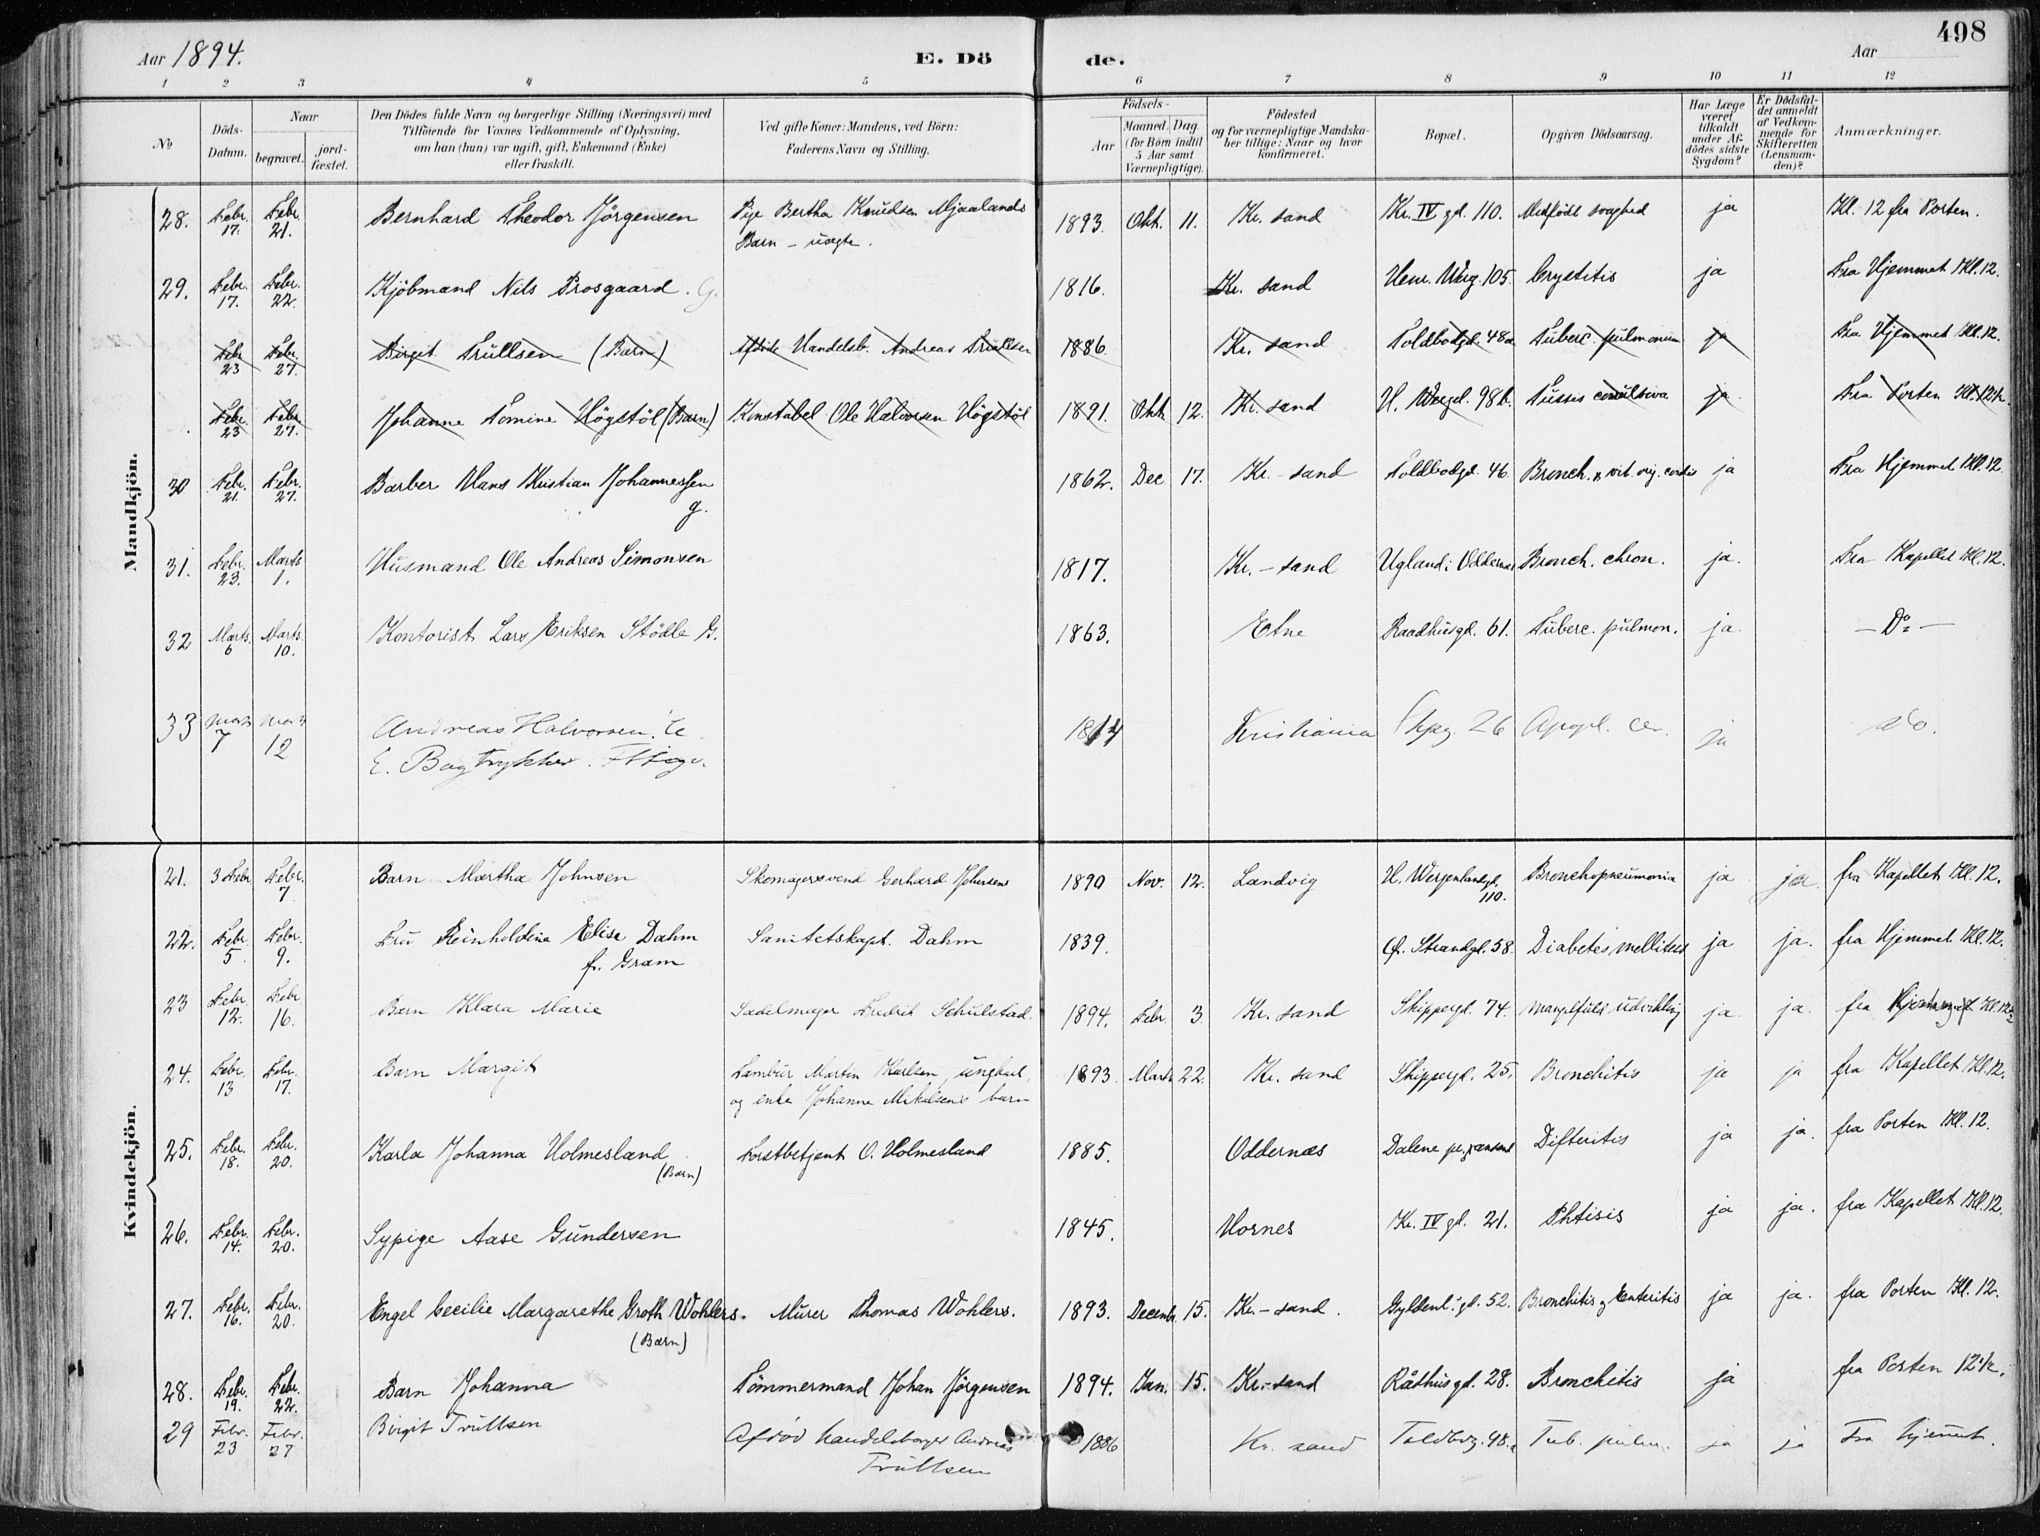 498
Aar 1894. E. Dö de. Aar
1 2 3 4 5 6 7 8 9 10 11 12
No
Döds-Datum.
Naar
begravet.
jord-fæstet.
Den Dödes fulde Navn og borgerlige Stilling (Næringsvei) med
Tilföiende for Voxnes Vedkommende af Oplysning,
om han (hun) var ugift, gift, Enkemand (Enke)
eller fraskilt.
Ved gifte Koner: Mandens, ved Börn:
Faderens Navn og Stilling.
Födsels-
Aar
Maaned. Dag.
(for Börn indtil
5 Aar samt
Værnepligtige).
Födested
og for værnepligtige Mandska-
ber tillige: Naar og hvor
konfirmeret.
Bopæl.
Opgiven Dödsaarsag.
Har Læge
været
tilkaldt
under Af-
dödes sidste
Sygdom?
Er Dödsfal-
det anmeldt
af Vedkom-
mende for
Skifteretten
(Lensman-
den)?
Anmærkninger.
Mandkjön.
28. Febr. 17. Febr. 21. Bernhard Theodor Jörgensen Pige Bertha Knudsen Mjaalands 1893. Okt. 11. Kr. sand Kr. IV gd. 110. Medfödt svaghed ja Kl. 12 fra Porten.
Barn – uægte.
29. Febr. 17. Febr. 22. Kjöbmand Nils Prosgaard. G. 1816. Kr. sand Henr. Werg. 105. Crystitis ja Fra Hjemmet Kl. 12.
Febr 23 Febr. 27. Birgit Trullsen (Barn) Afdöde Handelsb. Andreas Trullsen 1886. Kr. sand Toldbodgd. 48a Tuberc. pulmonum ja Fra Hjemmet Kl. 12.
Febr. 23 Febr 27. Johanne Tomine Högstöl (Barn) Konstabel Ole Halvorsen Högstöl 1891. Okt. 12. Kr. sand H. Wergl. 98b. Tussis ja Fra Porten Kl. 12½.
30 Febr. 21. Febr. 27. Barber Hans Kristian Johannessen 1862. Dec 17. Kr.-sand Toldbodgd. 46. Bronch. & vit. org. cordis ja Fra Hjemmet Kl. 12
g.
31. Febr. 23. Marts 1. Husmand Ole Andreas Simonsen 1817. Kr.-sand Ugland i Oddernæs Bronch. chron. ja. Fra Kapellet Kl. 12.
32 Marts 6 Marts. 10. Kontorist Lars Eriksen Stödle G. 1863. Etne Raadhusgd. 61. Tuberc. pulmon. ja. – Do –
33 Marts 7 Marts 12 Andreas Halvorsen. 1814 Kristiania 26 Apopl. cer. ja do.
E. Bogtrykker.
Kvindekjön.
21. 3 Febr Febr. 7. Barn Martha Johnsen Skomagersvend Gerhard Johnsens 1890 Nov. 12. Landvig H. Wergelandsgd. 110. Bronchopneumonia ja ja fra Kapellet Kl. 12.
22. Febr. 5 Febr. 9. Fru Reinholdine Elise Dahm Sanitetskapt. Dahm 1839. Ø. Strandgd. 58. Diabetes mellitus ja ja. fra Hjemmet Kl. 12.
f. Gram
23 Febr 12. Febr 16. Barn Klara Marie Sadelmager Fredrik Schulstad. 1894. Febr 3. Kr. sand Skippergd. 74. Mangelfuld udvikling ja. ja. fra Kl. 12½
24. Febr. 13 Febr. 17. Barn Margit Tambur Martin Karlsen, ungkarl, 1893. Marts 22. Kr. sand Skippergd. 25. Bronchitis ja ja fra Kapellet Kl. 12.
og enke Johanne Mikalsens barn
25. Febr. 18. Febr. 20. Karla Johanna Holmesland Forstbetjent O. Holmesland 1885. Oddernæs Dalene Difteritis ja ja. fra Porten Kl. 12.
(Barn)
26. Febr. 14. Febr. 20. Sypige Aase Gundersen 1845. Hornes Kr. IV gd. 21. Phtisis ja ja. fra Kapellet Kl. 12.
27. Febr. 16. Febr. 20. Engel Cecilie Margarethe Groth Wohlers. Murer Thomas Wohlers. 1893. Decembr. 15. Kr.-sand. Gyldenl. gd. 52. Bronchitis og Enteritis ja ja. fra Porten Kl. 12.
(Barn)
28. Febr. 19. Febr. 22. Barn Johanna Tömmermand Johan Jörgensen 1894. Jan. 15. Kr.-sand Rådhusgd. 28. Bronchitis ja fra Porten 12½.
29 Febr. 23 Febr. 27 Birgit Trullsen Afdöd handelsborger Andreas 1886 Kr. sand Toldbg. 48.a Tub. pulm. ja ja Fra hjemmet.
Trullsen